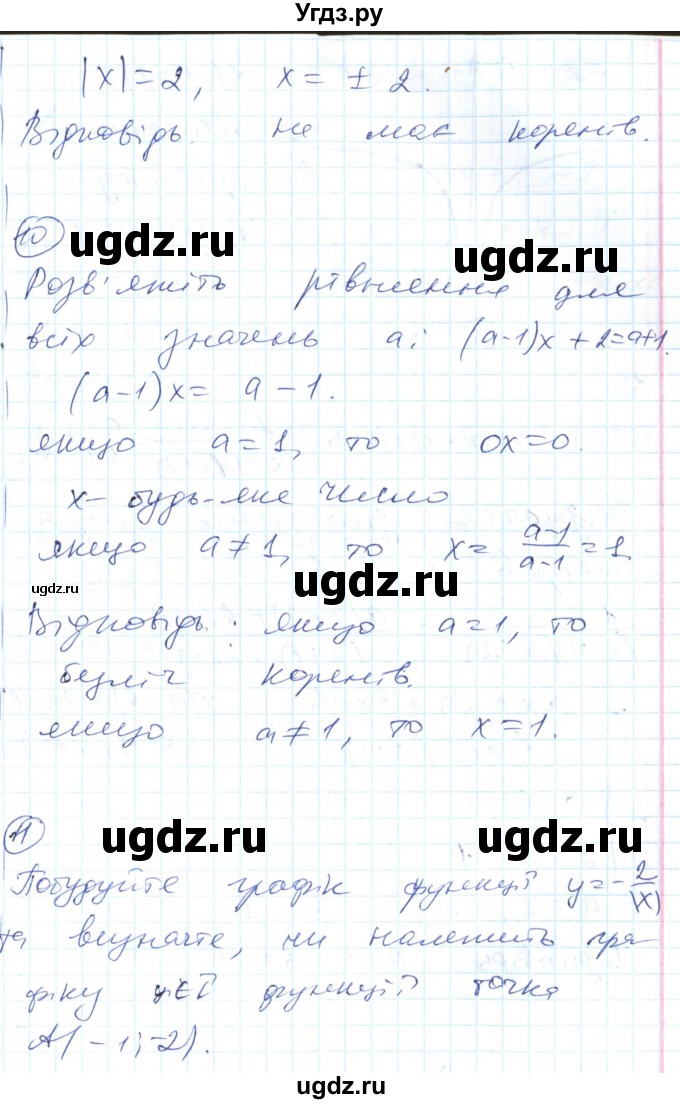 Угдз.ру
|x|=2, x=±2.
Відповідь. не має коренів.
10
ugdz.ru
ugdz.ru
Розв'яжіть рівняння для
всіх значень a: (a-1)x+2=a+1.
(a-1)x= a-1.
якщо a=1, то 0x=0.
x- будь-яке число
якщо a≠1, то x= a-1/a-1 =1
ugdz.ru
ugdz.ru
Відповідь: якщо a=1, то
безліч коренів.
якщо a≠1, то x=1.
11
ugdz.ru
ugdz.ru
Побудуйте графік функції y=-2/|x|
та визначте, чи належить гра
фіку цієї функції точка
A(-1;-2).
ugdz.ru